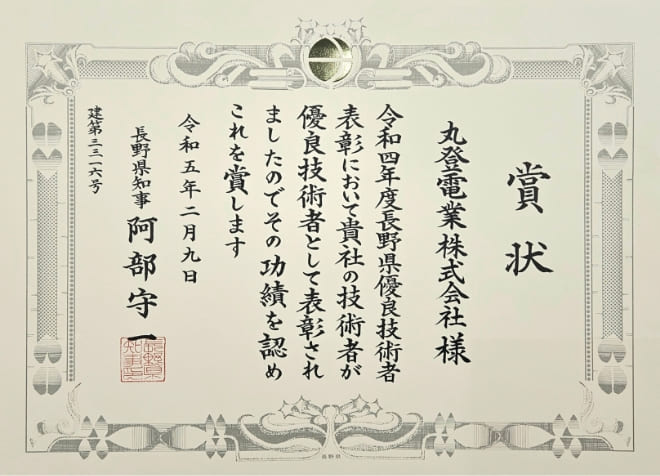 賞状
丸登電業株式会社様
令和四年度長野県優良技術者
表彰において貴社の技術者が
優良技術者として表彰され
ましたのでその功績を認め
これを賞します
令和五年二月九日
長野県知事 阿部守一
建第三三一六号
長野県